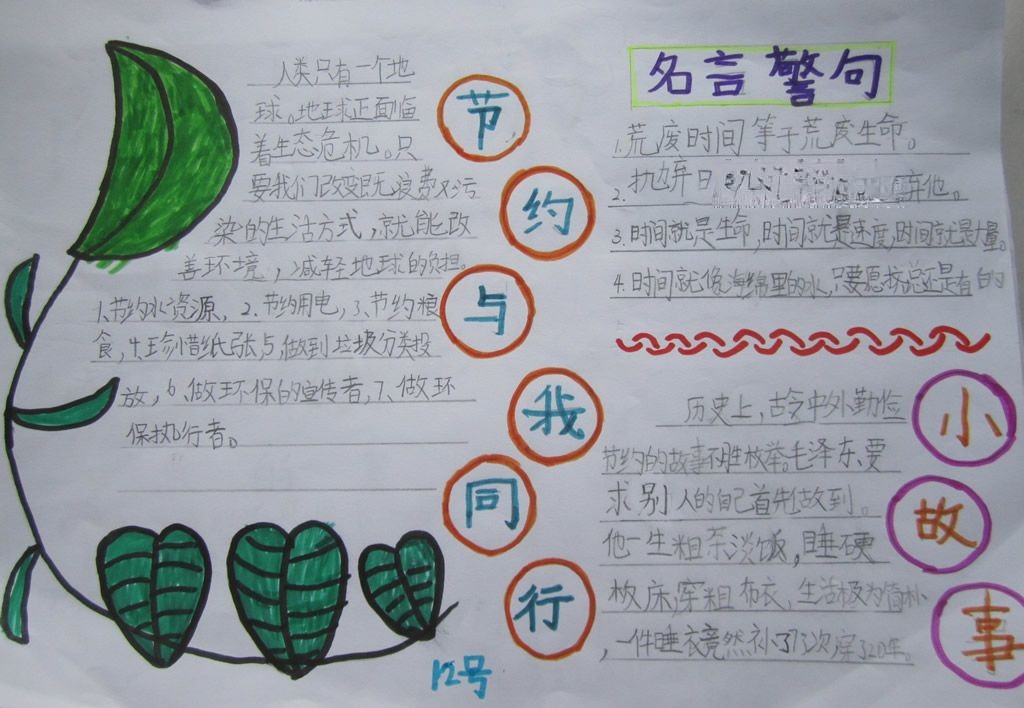 人类只有一个地
球。地球正面临
着生态危机。只
要我们改变既无浪费又污
染的生活方式，就能改
善环境，减轻地球的负担。
1、节约水资源，2、节约用电，3、节约粮
食，4、珍惜纸张，5，做到垃圾分类投
放，6、做环保的宣传者，7、做环
保执行者。
节
约
与
我
同
行
12号
名言警句
1.荒废时间等于荒废生命。
2.抛弃日 弃他。
3.时间就是生命，时间就是速度，时间就是力量。
4.时间就像海绵里的水，只要愿挤总还是有的
小
故
事
历史上，古今中外勤俭
节约的故事不胜枚举。毛泽东、要
求别人的自己首先做到。
他一生粗茶淡饭，睡硬
板床，穿粗布衣，生活极为简朴
，一件睡衣竟然补了73次穿了20年。